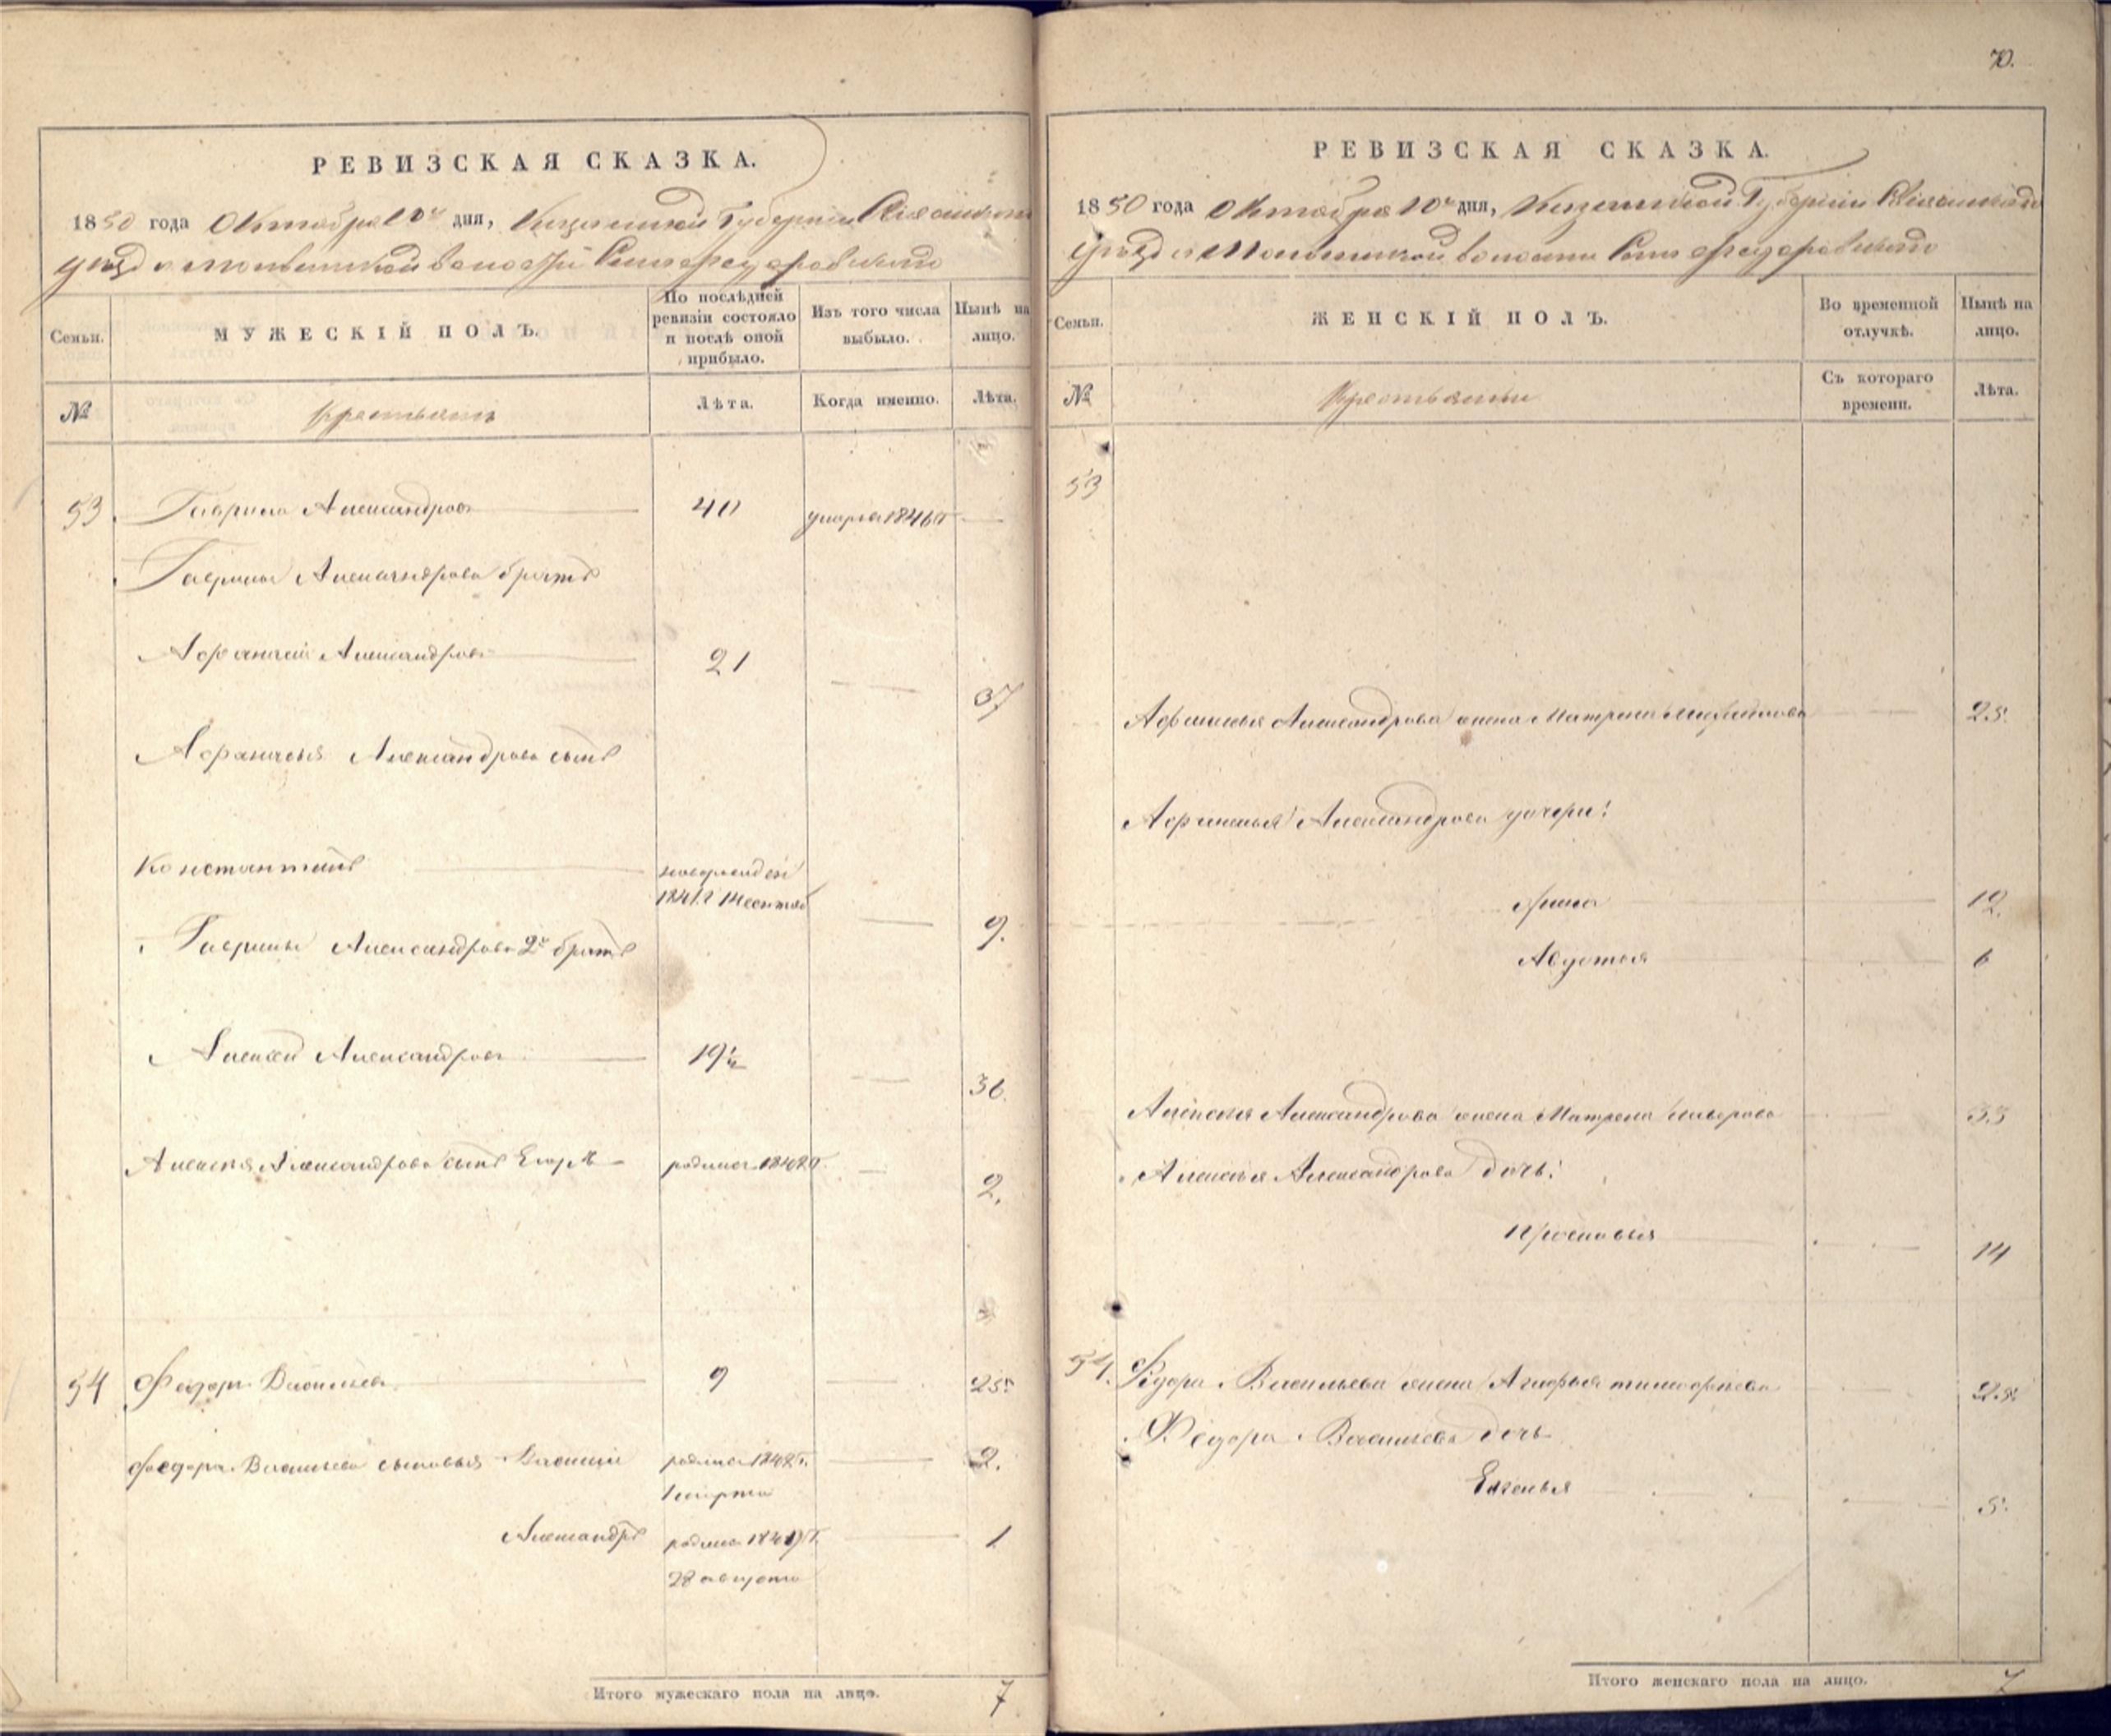 РЕВИЗСКАЯ СКАЗКА.
1850 года Октября 10го дня, Казанской Губерніи
уѣзда волости Села
Семьи.
МУЖЕСКІЙ ПОЛЪ.
По послѣдней ревизіи состояло и послѣ оной прибыло.
Изъ того числа выбыло.
Нынѣ на лицо.
№
Крестьянъ
Лѣта.
Когда именно.
Лѣта.
53 Гаврило Александровъ 40 умеръ 1846 г
Гаврилы Александрова братъ
Афанасий Александровъ 21 37
Афанасья Александрова сынъ
Константинъ новорожден
1841 г 14 сентяб 9.
Гаврилы Александрова 2й братъ
Алексей Александровъ 19½ 36.
Алексея Александрова сынъ Егоръ родился 1848 г. 2.
54 Федоръ Васильевъ 9 25.
Федора Васильева сыновья Василий родился 1848 г. 2.
1 марта
Александръ родился 1849 г. 1
28 августа
Итого мужескаго пола на лицо. 7
70.
РЕВИЗСКАЯ СКАЗКА.
1850 года Октября 10го дня, Казанской Губерніи
Уѣзда волости Села
Семьи.
ЖЕНСКІЙ ПОЛЪ.
Во временной отлучкѣ.
Нынѣ на лицо.
№
Крестьянъ
Съ котораго времени.
Лѣта.
53
Афанасья Александрова жена Матрена 25.
Афанасья Александрова дочери:
Арина 12.
Авдотья 6
Алексея Александрова жена Матрена 33
Алексея Александрова дочь:
Прасковья 14
54. Федора Васильева жена Агафья Тимофеева 25.
Федора Васильева дочь
Евгенья 5.
Итого женскаго пола на лицо. 7